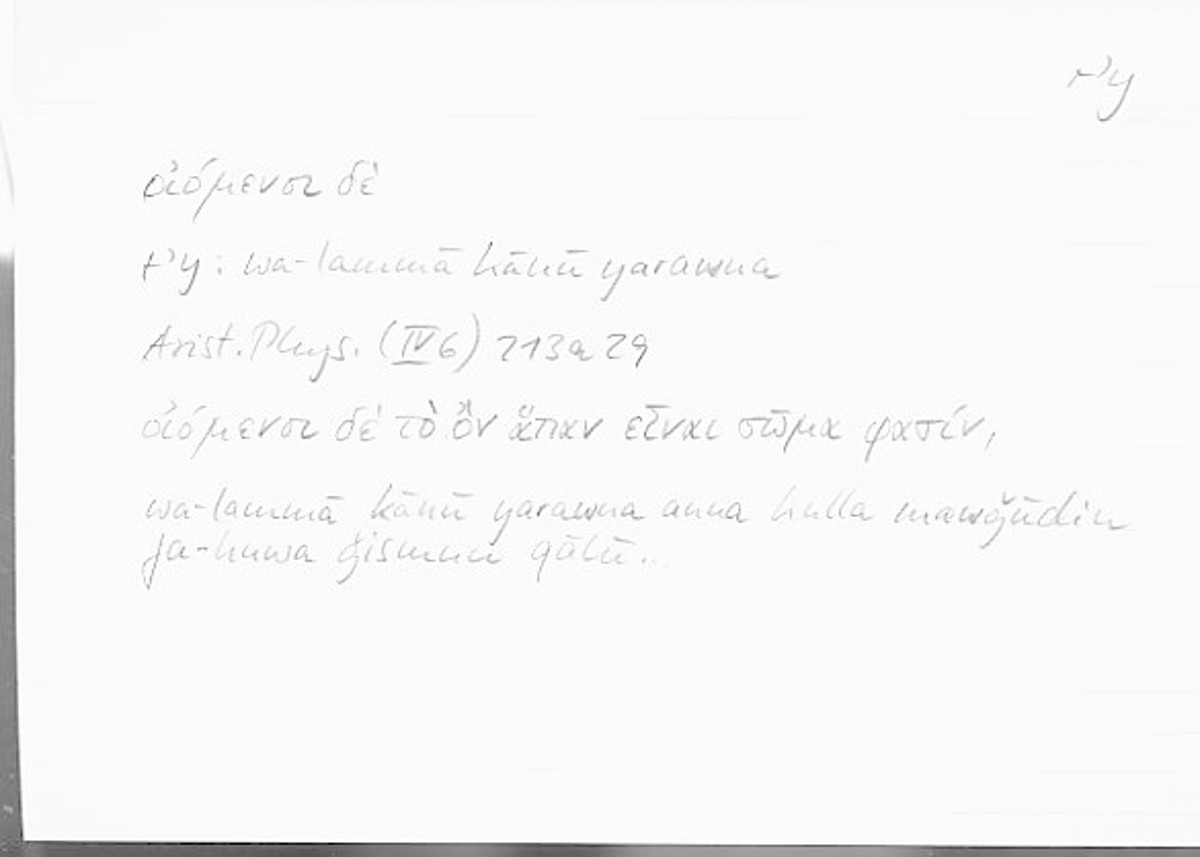 rʾy
οἰόμενοι δὲ
rʾy: wa-lammā kānū yarawna
Arist. Phys. (IV 6) 213a29
οἰόμενοι δὲ τὸ ὂν ἅπαν εἶναι σῶμα φασίν,
wa-lammā kānū yarawna anna kulla mawǧūdin
fa-huwa ǧismun qālū...